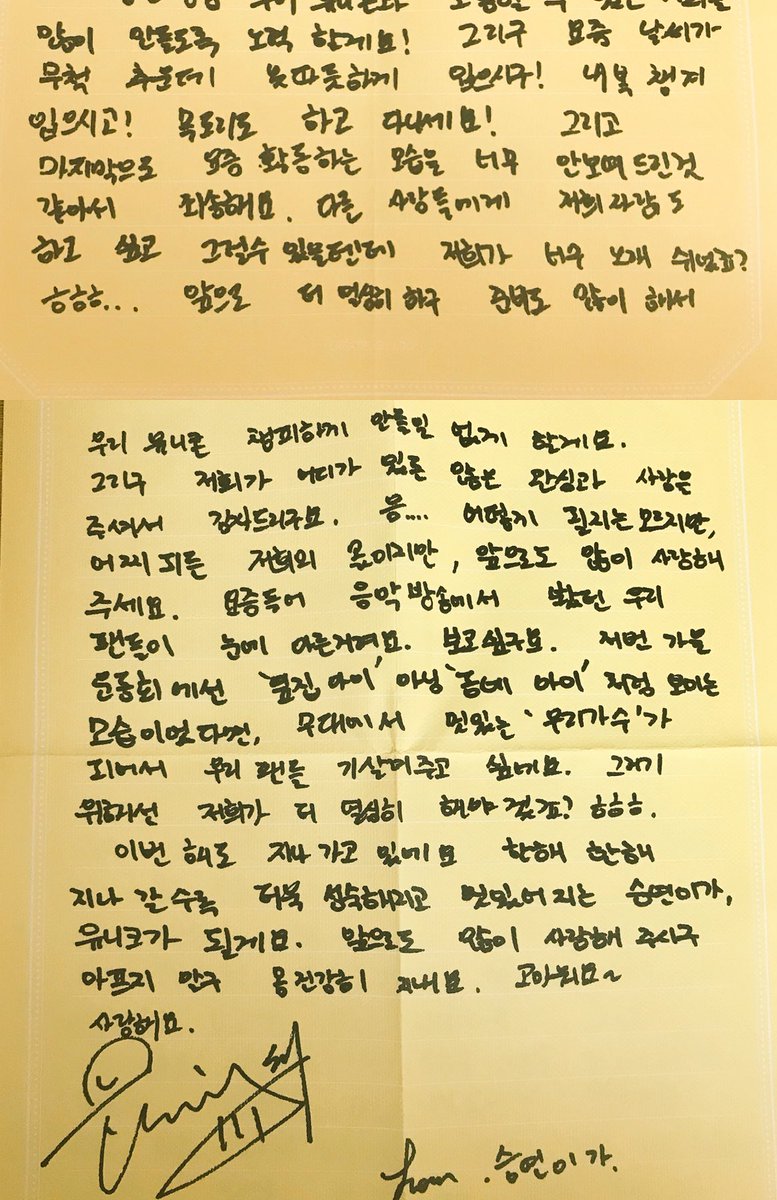 많이 만들도록 노력 할게요! 그리구 요즘 날씨가
무척 추운데 옷따뜻하게 입으시구! 내복 챙겨
입으시고! 목도리도 하고 다니세요! 그리고
마지막으로 요즘 활동하는 모습을 너무 안보여 드린것
같아서 죄송해요. 다른 사람들에게 저희 자랑도
하고 싶고 그럴수 있을텐데 저희가 너무 오래 쉬었죠?
ㅎㅎㅎ... 앞으로 더 열심히 하구 준비도 많이 해서
우리 유니콘 창피하게 만들일 없게 할게요.
그리구 저희가 어디가 많은 관심과 사랑은
주셔서 감사드리구요. 음.... 어떻게 될지는 모르지만,
어찌 되든 저희의 몫이지만, 앞으로도 많이 사랑해
주세요. 요즘들어 음악방송에서 봤던 우리
팬들이 눈에 아른거려요. 보고싶구요. 저번 가을
운동회에선 '옆집 아이' 아닌 '동네 아이' 처럼 보이는
모습이었다면, 무대에서 멋있는 '우리가수'가
되어서 우리 팬들 기살려주고 싶네요. 그러기
위해선 저희가 더 열심히 해야 겠죠? ㅎㅎㅎ.
이번 해도 지나 가고 있네요 한해 한해
지나 갈 수록 더욱 성숙해지고 멋있어 지는 승연이가,
유니크가 될게요. 앞으로도 많이 사랑해 주시구
아프지 말구 몸 건강히 지내요. 고마워요~
사랑해요.
from. 승연이가.